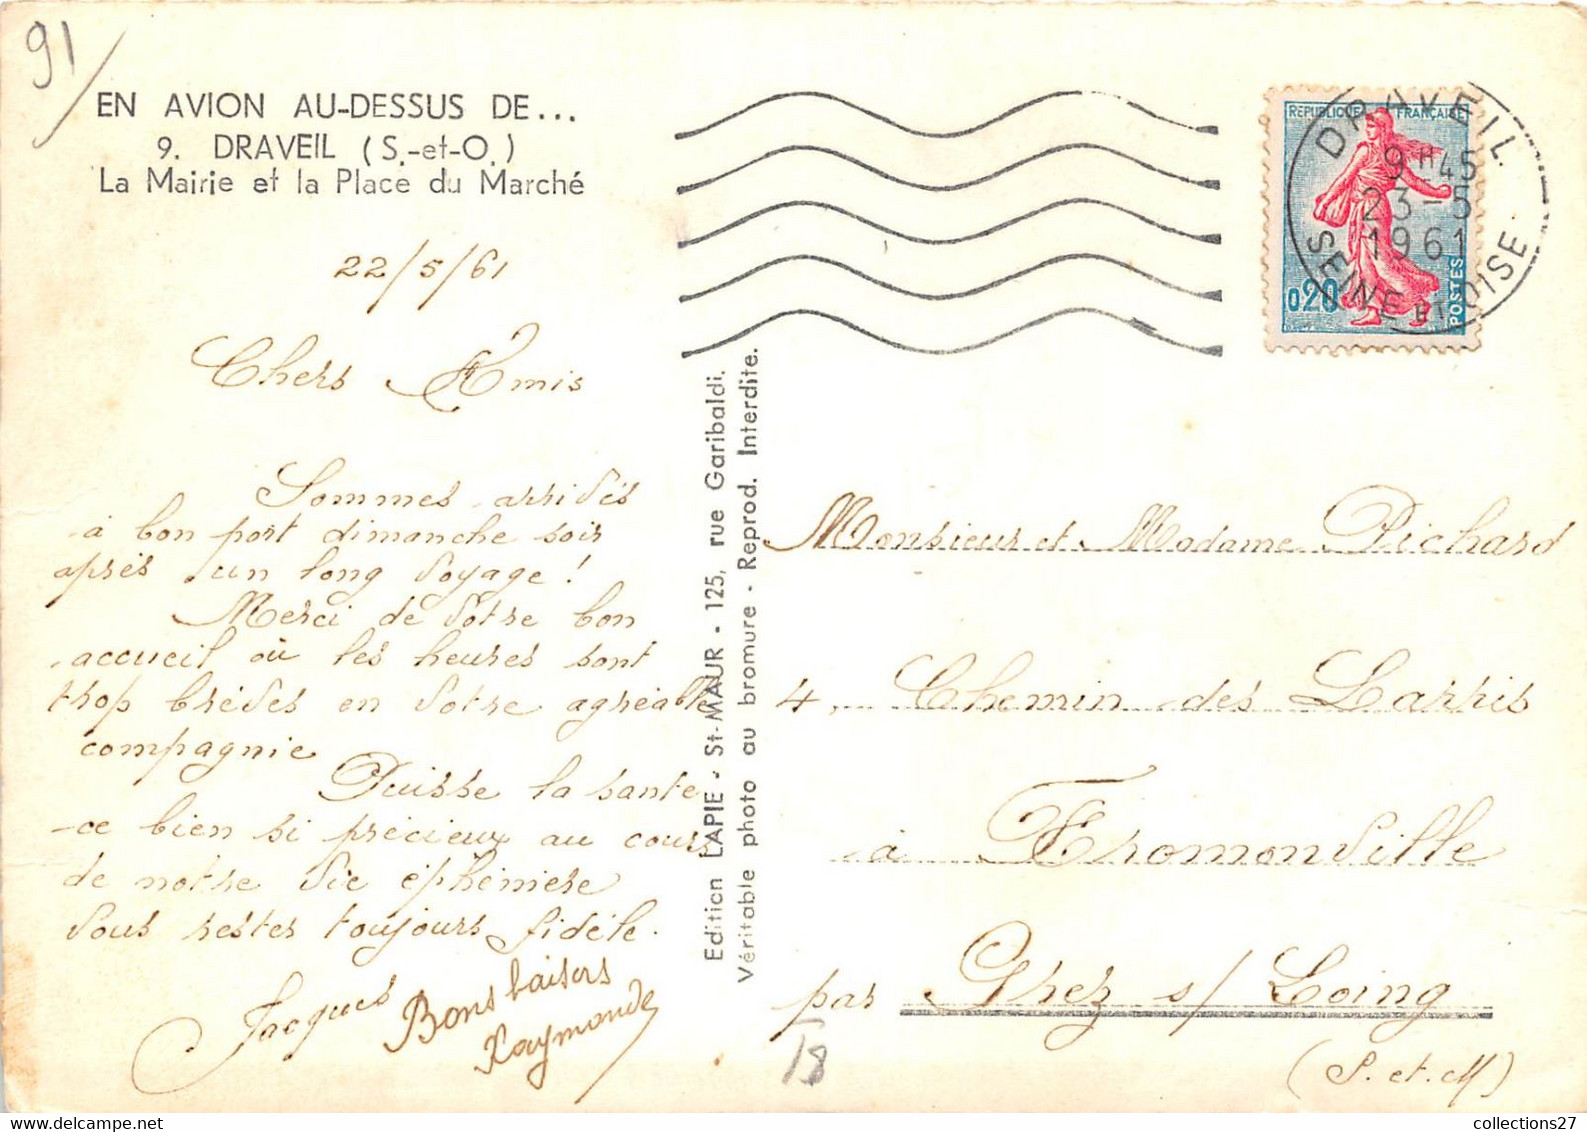 91/
EN AVION AU-DESSUS DE...
9. DRAVEIL (S.-et-O.)
La Mairie et la Place du Marché
22/5/61
Chers Amis
Sommes arrivés
à bon port dimanche soir
après un long voyage !
Merci de votre bon
accueil où les heures sont
trop brèves en votre agréable
compagnie
Puisse la santé
ce bien si précieux au cours
de notre vie éphémère
vous rester toujours fidèle.
Jacques
Bons baisers
Raymonde
Edition LAPIE - St-MAUR - 125, rue Garibaldi.
Véritable photo au bromure - Reprod. Interdite.
REPUBLIQUE FRANÇAISE
0,20
POSTES
DRAVEIL
9H45
23-5
1961
SEINE ET OISE
Monsieur et Madame Pichard
4, Chemin des Larris
à Fromonville
par Grez s/ Loing
(S. et M)
18
collections27